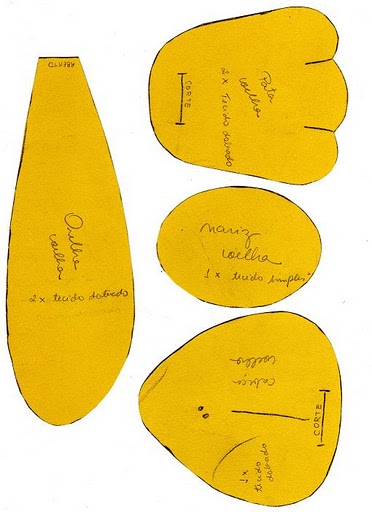 ABERTO
Orelha
coelha
2 x tecido dobrado
Pata
coelha
2 x Tecido dobrado
CORTE
nariz
coelha
1 x tecido simples
cabeça
coelha
CORTE
1 x
tecido
dobrado